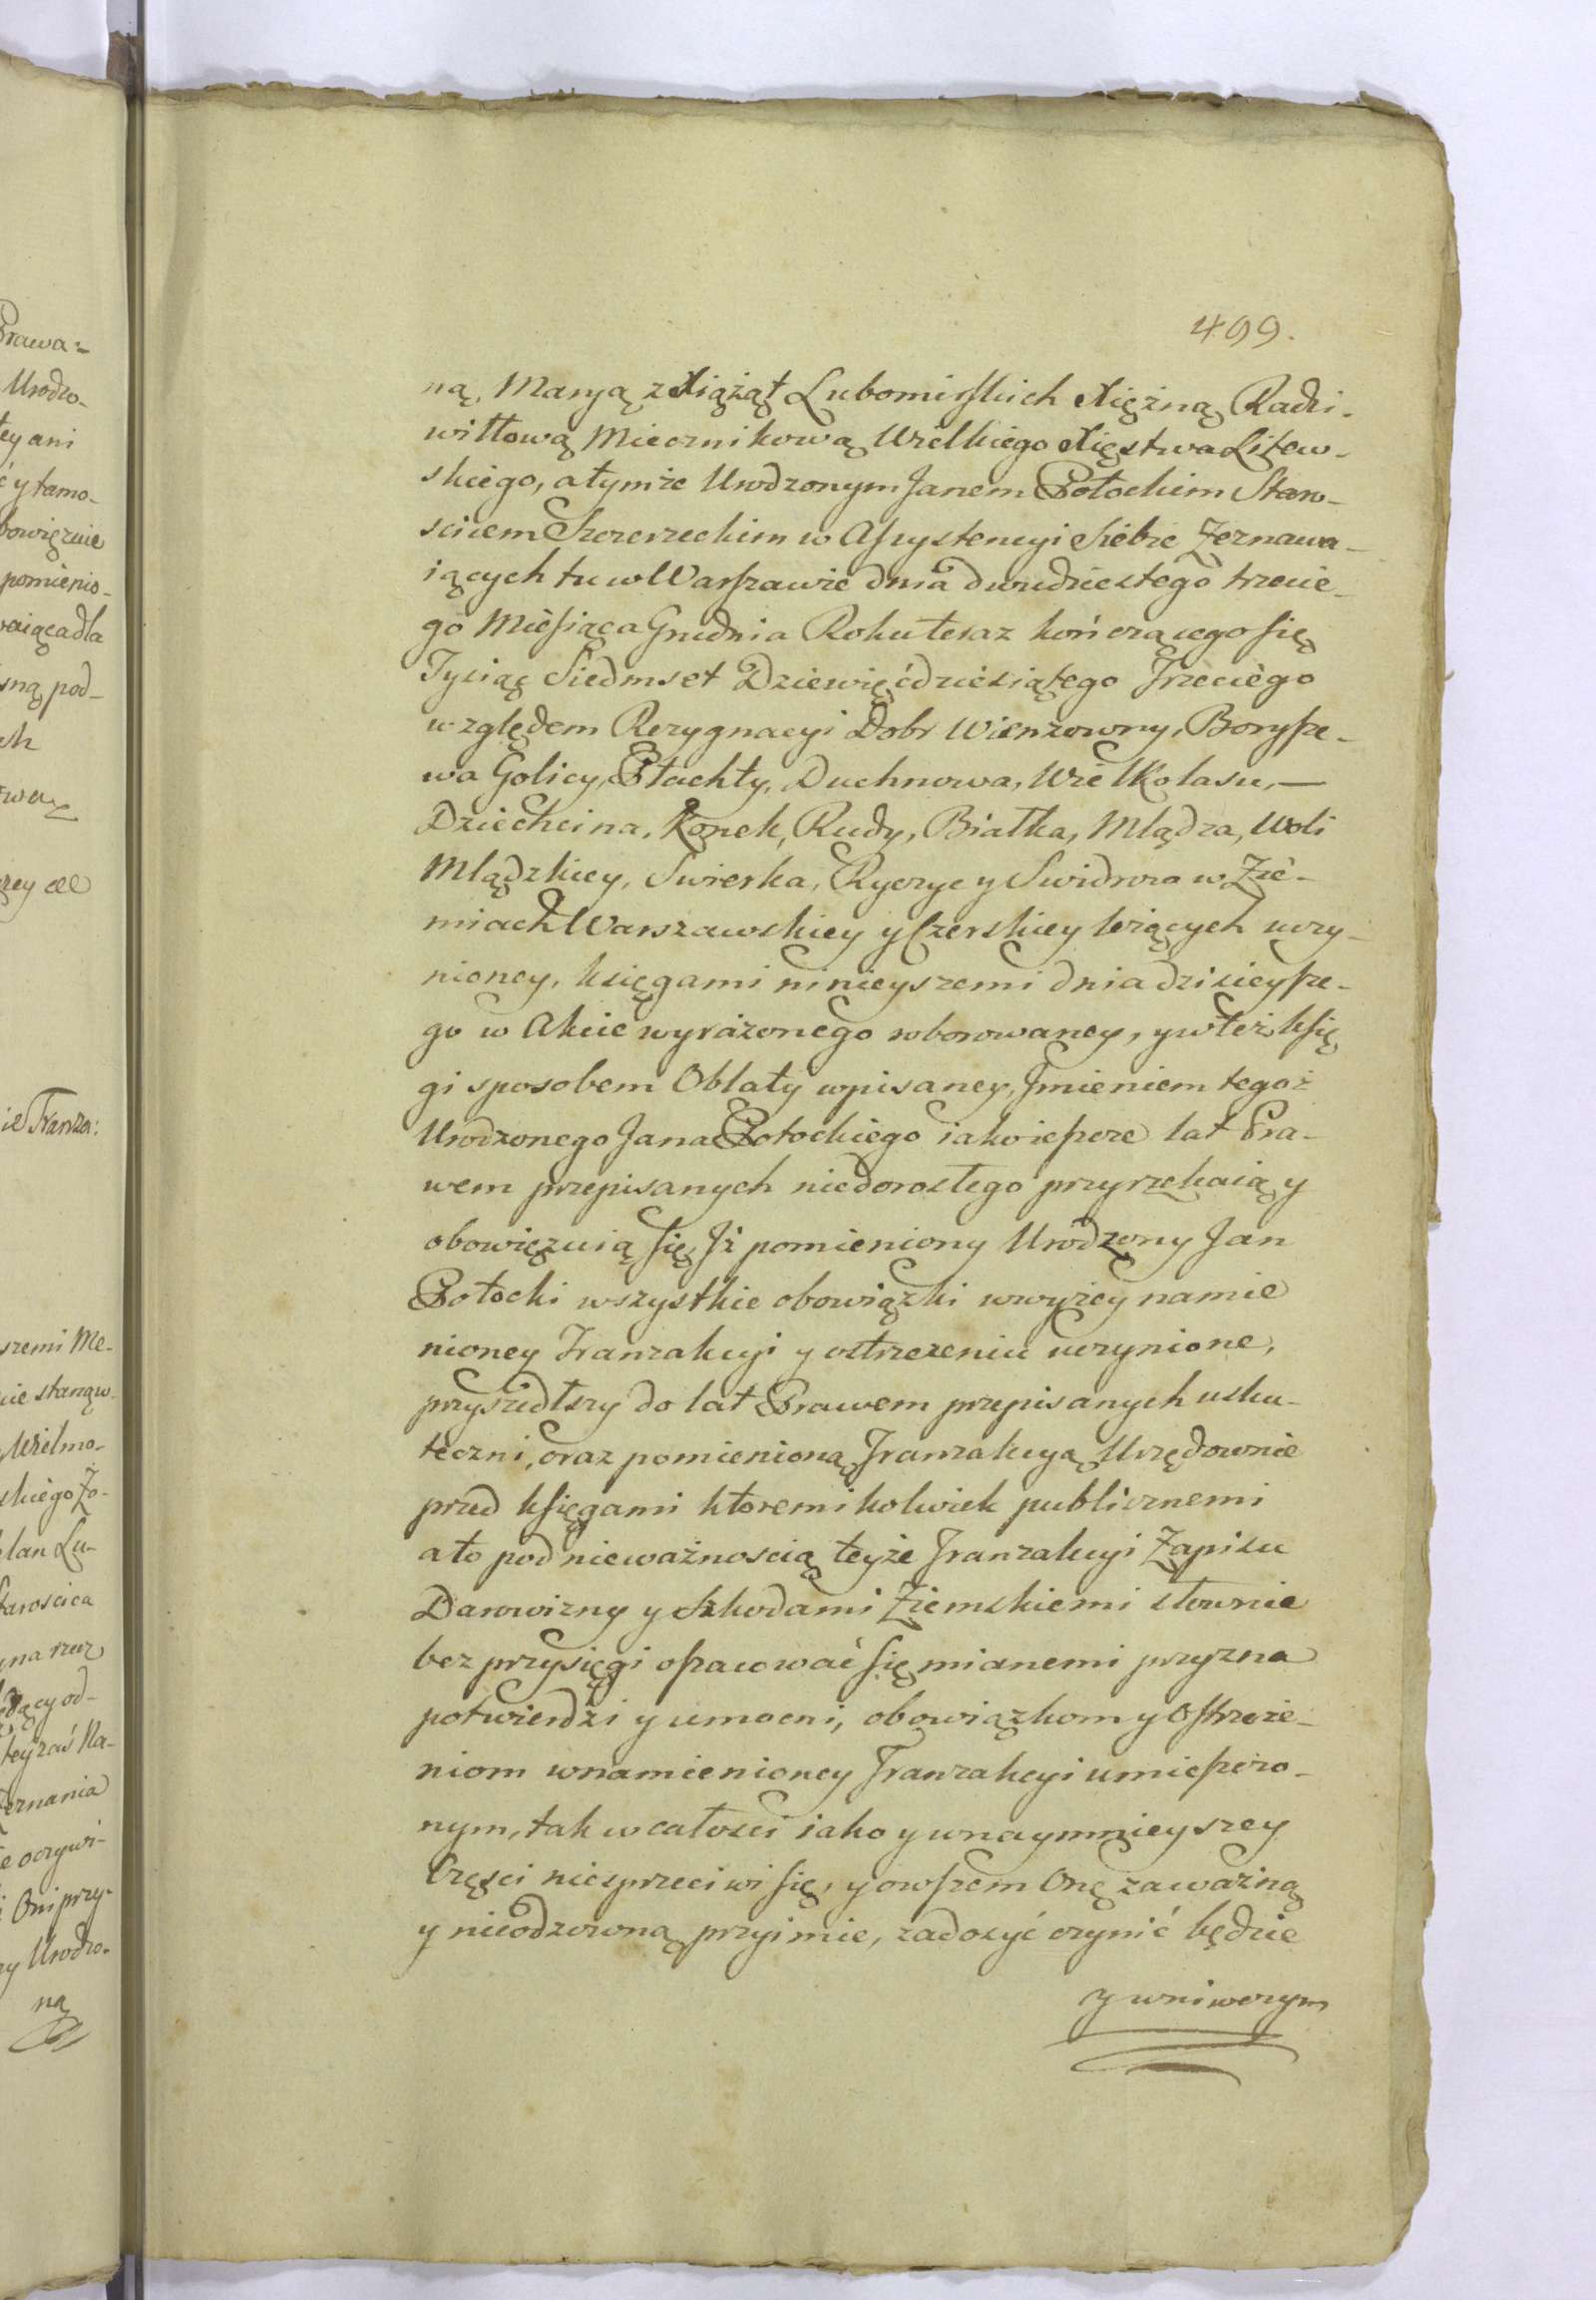 499.
ną, Maryą z Xiążąt Lubomirskich Xiężną Radzi-
wiłłową Miecznikową Wielkiego Xięstwa Litew-
skiego, a tymże Urodzonym Janem Potockim Staro-
scicem Szczerzeckim w Assystencyi Siebie Zeznawa-
iących tu w Warszawie dnia dwudziestego trzecie-
go Miesiąca Grudnia Roku teraz kończącego się
Tysiąc Siedmset Dziewięćdziesiątego Trzeciego
względem Rezygnacyi Dobr Wienzowny, Borysze-
wa Golicy, Płachty, Duchnowa, Wielkolasu, —
Dziechcina, Konek, Rudy, Białka, Mlądza, Woli
Mlądzkiey, Swierka, Rycryc y Swidrow w Zie-
miach Warszawskiey y Czerskiey leżących uczy-
nioney, księgami ninieyszemi dnia dzisieysze-
go w Akcie wyrażonego roborowaney, y w też księ
gi sposobem Oblaty wpisaney, Imieniem tegoż
Urodzonego Jana Potockiego iako ieszcze lat Pra-
wem przepisanych niedorosłego przyrzekaią y
obowięzuią się, Iż pomieniony Urodzony Jan
Potocki wszystkie obowiązki w wyżey namie
nioney Tranzakcyi y ostrzezeniu uczynione,
przyszedłszy do lat Prawem przepisanych usku-
teczni, oraz pomienioną Tranzakcyą Urzędownie
przed księgami ktoremikolwiek publicznemi
a to pod nieważnoscią teyże Tranzakcyi Zapisu
Darowizny y Szkodami Ziemskiemi słownie
bez przysięgi oszacować się mianemi przyzna
potwierdzi y umocni, obowiązkom y Ostrzeże-
niom w namienioney Tranzakcyi umieszczo-
nym, tak w całosci iako y w naymnieyszey
Częsci niesprzeciwi się, y owszem Onę za ważną
y nieodzowną przyimie, zadosyć czynić będzie
y w niwczym
Prawa:
Urodzo-
tey ani
ć y tamo-
bowięzuie
pomienio-
sną pod-
ch
ie Tranza:
szemi Me-
cie stanąw-
Wielmo-
skiego Zo-
lan Lu-
Staroscica
na rzecz
będący od-
teyzaś Ra-
zeznania
e oczywi-
i Oni przy-
ny Urodzo-
ną